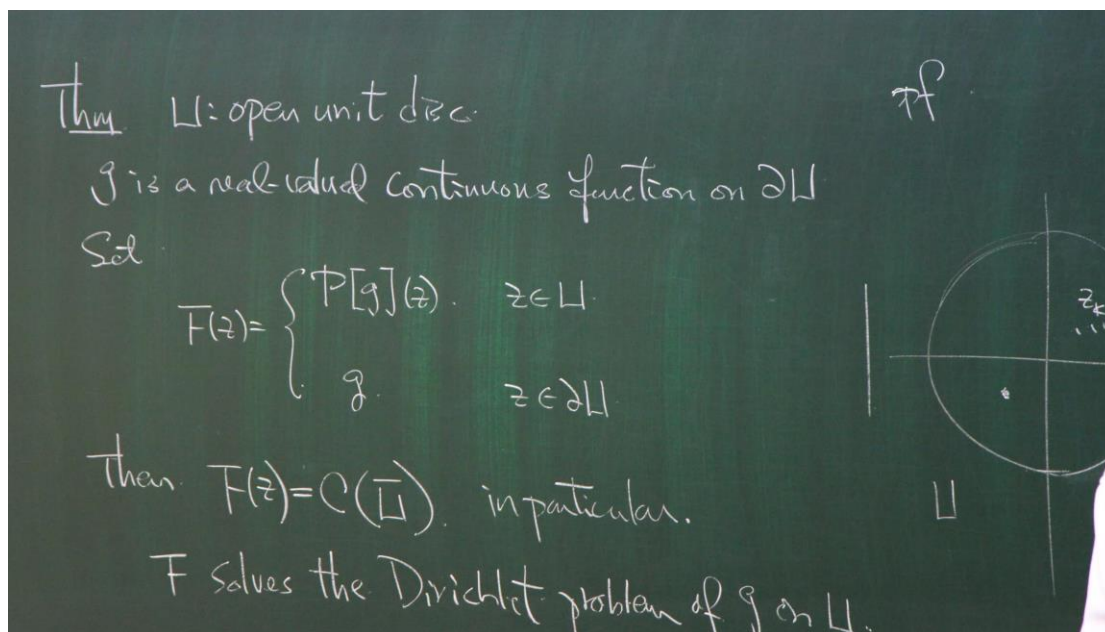 Thm U: open unit disc.
g is a real-valued continuous function on ∂U
Set
F(z)= { P[g](z). z∈U.
g. z∈∂U
Then F(z)=C(Ū). in particular.
F solves the Dirichlet problem of g on U.
pf.
z_k
U